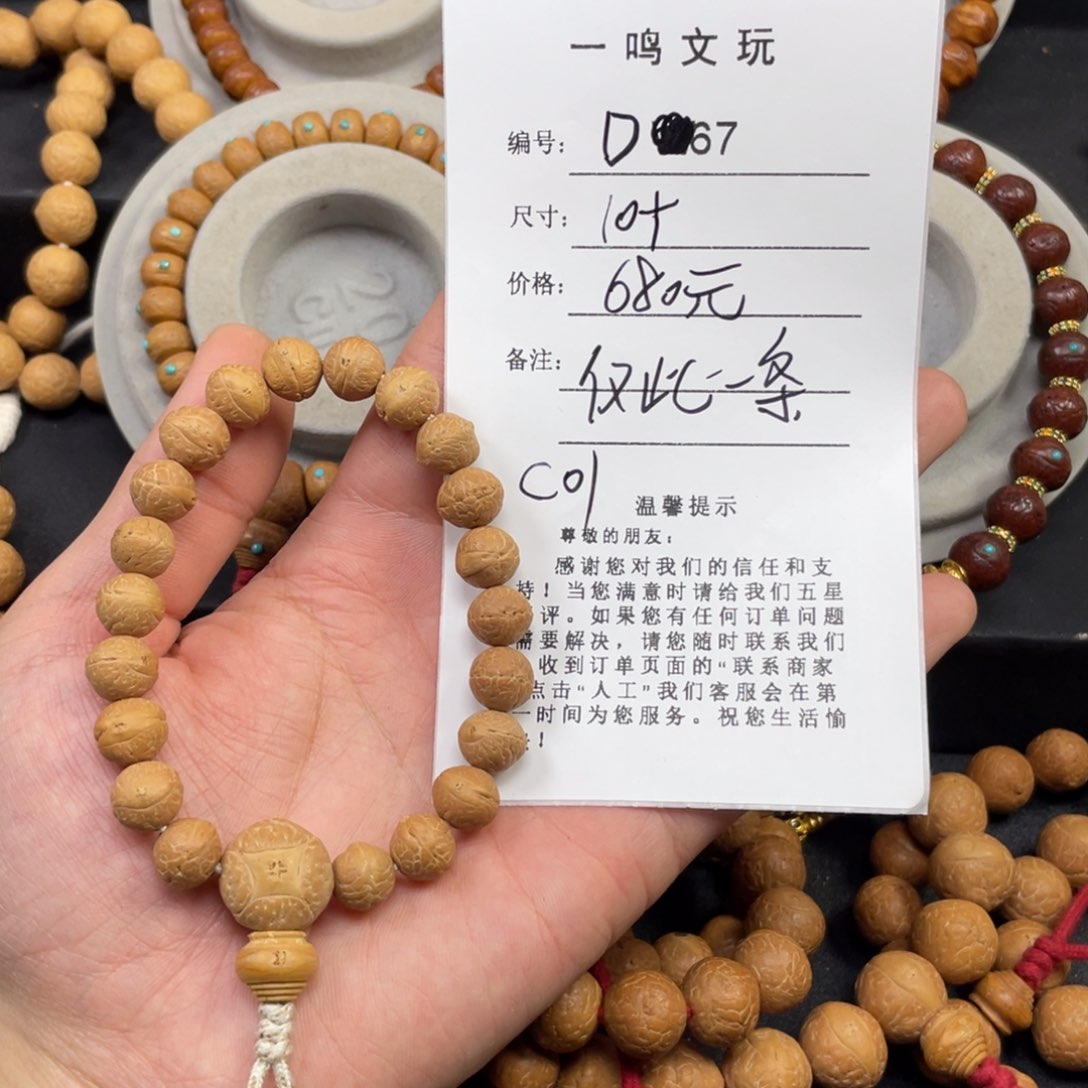 一鸣文玩
编号: D 67
尺寸: 10+
价格: 680元
备注: 仅此一条
C01
温馨提示
尊敬的朋友:
感谢您对我们的信任和支
持!当您满意时请给我们五星
评。如果您有任何订单问题
需要解决,请您随时联系我们
收到订单页面的“联系商家
点击“人工”我们客服会在第
一时间为您服务。祝您生活愉
!